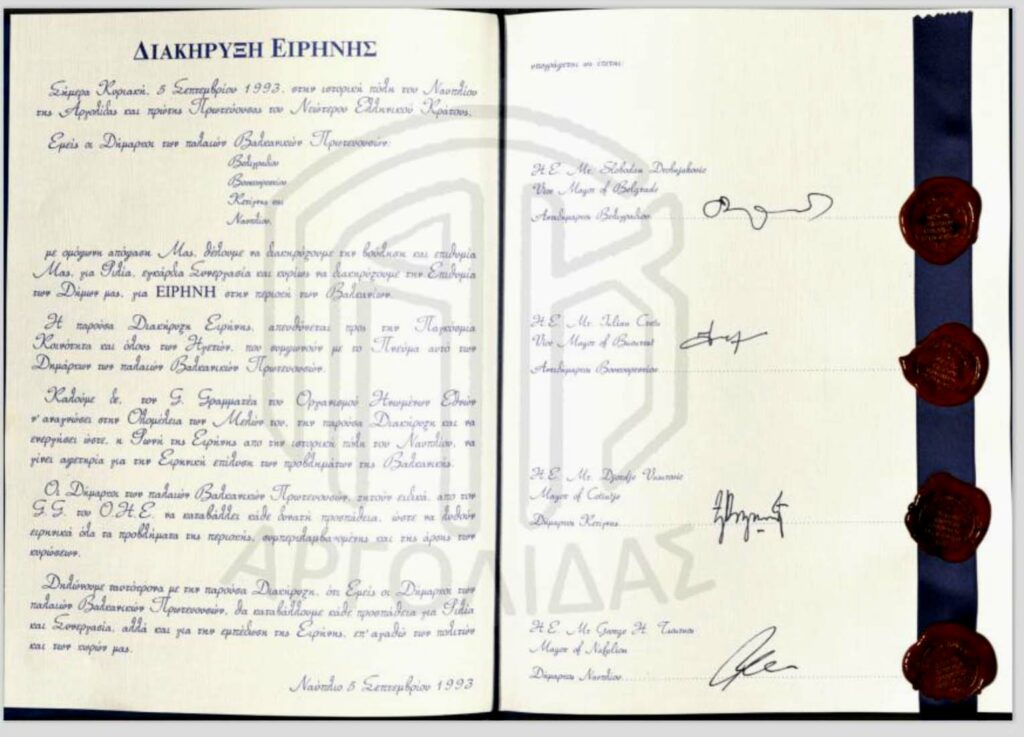 ΔΙΑΚΗΡΥΞΗ ΕΙΡΗΝΗΣ
Σήμερα Κυριακή, 5 Σεπτεμβρίου 1993, στην ιστορική πόλη του Ναυπλίου
της Αργολίδας και πρώτης Πρωτεύουσας του Νεώτερου Ελληνικού Κράτους,
Εμείς οι Δήμαρχοι των παλαιών Βαλκανικών Πρωτευουσών:
Βελιγραδίου
Βουκουρεστίου
Κετίγνης και
Ναυπλίου,
με ομόφωνη απόφαση Μας, θέλουμε να διακηρύξουμε την βούληση και επιθυμία
Μας, για Φιλία, εγκάρδια Συνεργασία και κυρίως να διακηρύξουμε την Επιθυμία
των Δήμων μας, για ΕΙΡΗΝΗ στην περιοχή των Βαλκανίων.
Η παρούσα Διακήρυξη Ειρήνης, απευθύνεται προς την Παγκόσμια
Κοινότητα και όλους των Ηγετών, που συμφωνούν με το Πνεύμα αυτό των
Δημάρχων των παλαιών Βαλκανικών Πρωτευουσών.
Καλούμε δε, τον G. Γραμματέα του Οργανισμού Ηνωμένων Εθνών
ν' αναγνώσει στην Ολομέλεια των Μελών του, την παρούσα Διακήρυξη και να
ενεργήσει ώστε, η Φωνή της Ειρήνης απο την ιστορική πόλη του Ναυπλίου, να
γίνει αφετηρία για την Ειρηνική επίλυση των προβλημάτων της Βαλκανικής.
Οι Δήμαρχοι των παλαιών Βαλκανικών Πρωτευουσών, ζητούν ειδικά, απο τον
G.G. του Ο.Η.Ε. να καταβάλλει κάθε δυνατή προσπάθεια, ώστε να λυθούν
ειρηνικά όλα τα προβλήματα της περιοχής, συμπεριλαμβανομένης και της άρσης των
κυρώσεων.
Δηλώνουμε ταυτόχρονα με την παρούσα Διακήρυξη, ότι Εμείς οι Δήμαρχοι των
παλαιών Βαλκανικών Πρωτευουσών, θα καταβάλλουμε κάθε προσπάθεια για Φιλία
και Συνεργασία, αλλά και για την εμπέδωση της Ειρήνης, επ' αγαθώ των πολιτών
και των χωρών μας.
Ναύπλιο 5 Σεπτεμβρίου 1993
υπογράφεται ως έπεται:
H.E. Mr. Slobodan
Vice Mayor of Belgrade
Αντιδήμαρχος Βελιγραδίου
H.E. Mr. Iulian
Vice Mayor of
Αντιδήμαρχος Βουκουρεστίου
H.E. Mr.
Mayor of
Δήμαρχος Κετίγνης
H.E. Mr George H.
Mayor of Nafplion
Δήμαρχος Ναυπλίου
ΑΡΓΟΛΙΔΑΣ